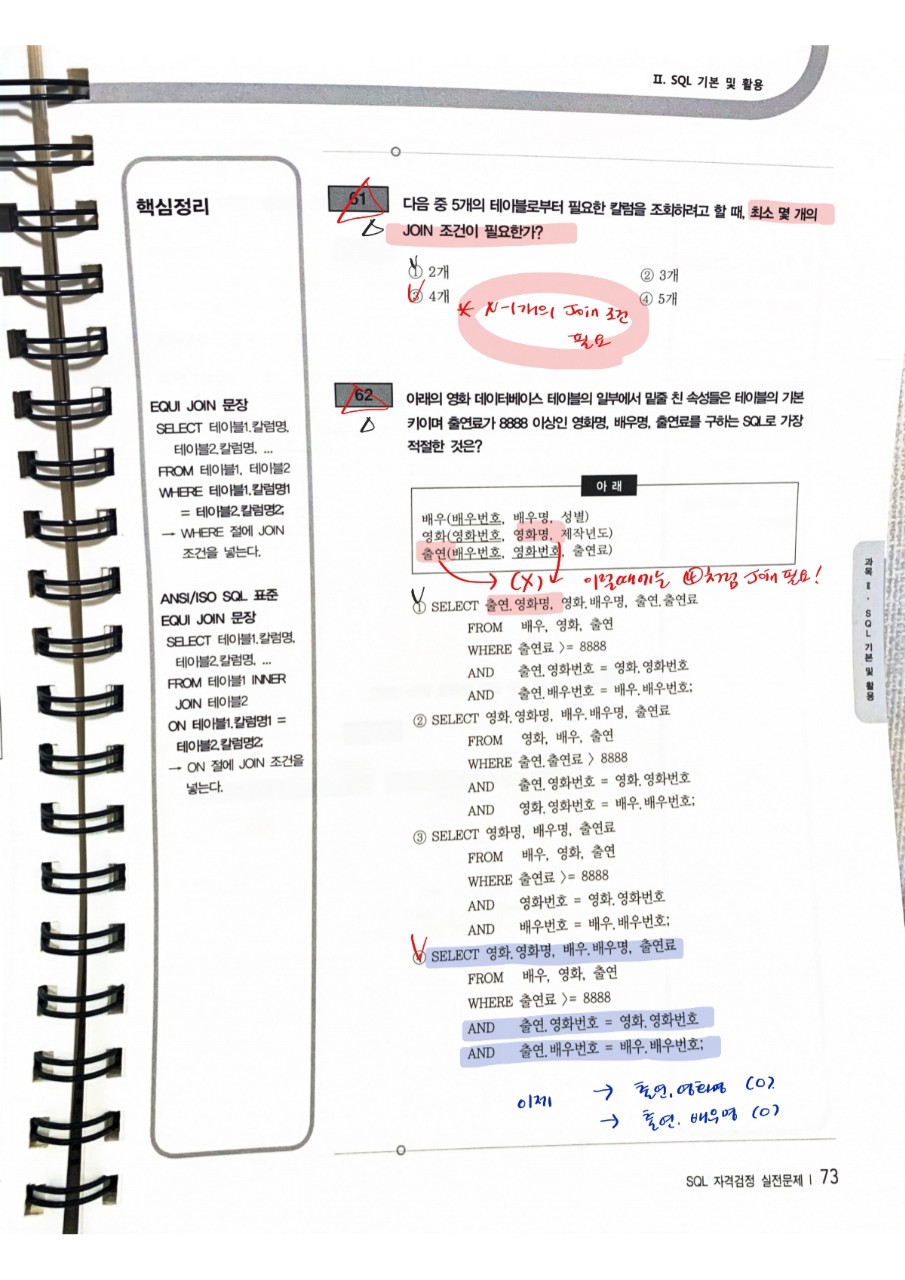 II. SQL 기본 및 활용
핵심정리
EQUI JOIN 문장
SELECT 테이블1.칼럼명,
테이블2.칼럼명, ...
FROM 테이블1, 테이블2
WHERE 테이블1.칼럼명1
= 테이블2.칼럼명2;
→ WHERE 절에 JOIN
조건을 넣는다.
ANSI/ISO SQL 표준
EQUI JOIN 문장
SELECT 테이블1.칼럼명,
테이블2.칼럼명, ...
FROM 테이블1 INNER
JOIN 테이블2
ON 테이블1.칼럼명1 =
테이블2.칼럼명2;
→ ON 절에 JOIN 조건을
넣는다.
61 다음 중 5개의 테이블로부터 필요한 칼럼을 조회하려고 할 때, 최소 몇 개의
JOIN 조건이 필요한가?
① 2개 ② 3개
③ 4개 ④ 5개
* N-1개의 Join 조건
필요
62 아래의 영화 데이터베이스 테이블의 일부에서 밑줄 친 속성들은 테이블의 기본
키이며 출연료가 8888 이상인 영화명, 배우명, 출연료를 구하는 SQL로 가장
적절한 것은?
아 래
배우(배우번호, 배우명, 성별)
영화(영화번호, 영화명, 제작년도)
출연(배우번호, 영화번호, 출연료)
→ (X) 이럴때에는 ④처럼 Join 필요!
① SELECT 출연.영화명, 영화.배우명, 출연.출연료
FROM 배우, 영화, 출연
WHERE 출연료 >= 8888
AND 출연.영화번호 = 영화.영화번호
AND 출연.배우번호 = 배우.배우번호;
② SELECT 영화.영화명, 배우.배우명, 출연료
FROM 영화, 배우, 출연
WHERE 출연.출연료 > 8888
AND 출연.영화번호 = 영화.영화번호
AND 영화.영화번호 = 배우.배우번호;
③ SELECT 영화명, 배우명, 출연료
FROM 배우, 영화, 출연
WHERE 출연료 >= 8888
AND 영화번호 = 영화.영화번호
AND 배우번호 = 배우.배우번호;
④ SELECT 영화.영화명, 배우.배우명, 출연료
FROM 배우, 영화, 출연
WHERE 출연료 >= 8888
AND 출연.영화번호 = 영화.영화번호
AND 출연.배우번호 = 배우.배우번호;
이제 → 출연.영화명 (O)
→ 출연.배우명 (O)
과목 II · SQL 기본 및 활용
SQL 자격검정 실전문제 | 73